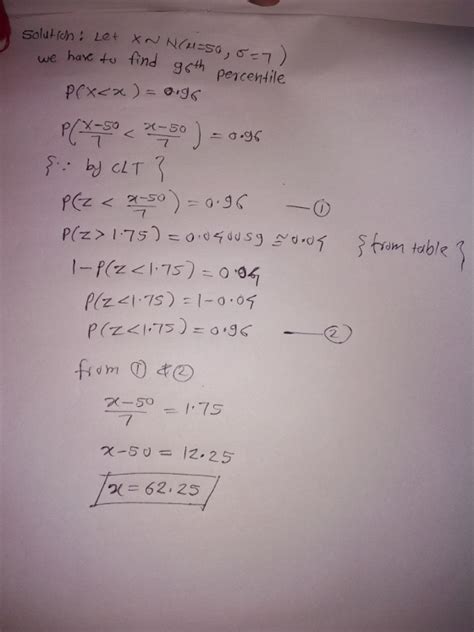 Solution: Let X ~ N(μ=50, σ=7)
we have to find 96th percentile
P(X<x) = 0.96
P(X-50/7 < x-50/7) = 0.96
{∵ by CLT}
P(Z < x-50/7) = 0.96 —①
P(Z>1.75) = 0.040059 ≅ 0.04 {from table}
1-P(Z<1.75) = 0.04
P(Z<1.75) = 1-0.04
P(Z<1.75) = 0.96 —②
from ① & ②
x-50/7 = 1.75
x-50 = 12.25
x = 62.25